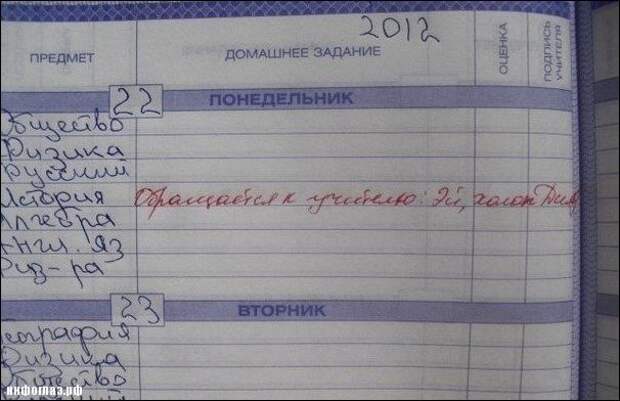 2012
ПРЕДМЕТ ДОМАШНЕЕ ЗАДАНИЕ ОЦЕНКА ПОДПИСЬ УЧИТЕЛЯ
22 ПОНЕДЕЛЬНИК
Общество
Физика
Русский
История Обращается к учителю: Эй, холоп
Алгебра
Англ. яз
Физ-ра
23 ВТОРНИК
География
Физика
Общество
инфоглаз.рф